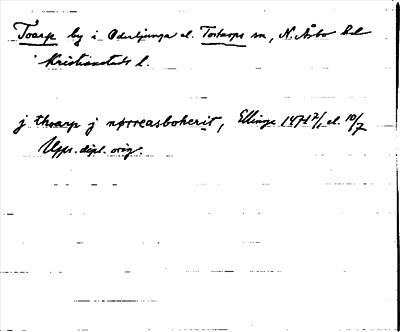 Toarp by i Oderljunga el. Tostarps sn, N. Åsbo hd
Kristianstads l.
j thoarp j nørreasboherit, Ellinge 1471 2/1 el. 10/7
Upps. dipl. orig.